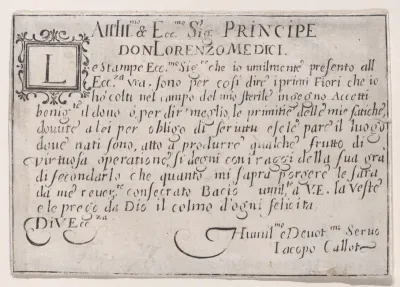 All Ill.mo & Ecc.mo Sig. PRINCIPE
DON LORENZO MEDICI.
Le stampe Ecc.mo Sig.re che io umilmente presento all
Ecc.za vra. sono per cosi dire i primi Fiori che io
hò colti nel campo del mio sterile ingegno Accetti
benig.te il dono ò per dir meglio le primitie delle mie fatiche
douute a lei per obligo di seruitu e se le pare il luogo
doue nati sono, atto à produrre qualche frutto di
virtuosa operatione, si degni con i raggi della sua gra.
di secondarlo che quanto mi saprà porgere le sarà
da me reuer.te consectato Bacio umil.te a V.E. la Veste
e le prego da Dio il colmo d'ogni felicita.
Di V. Ecc.za
Humil.mo e Deuot.mo Seruo
Iacopo Callot